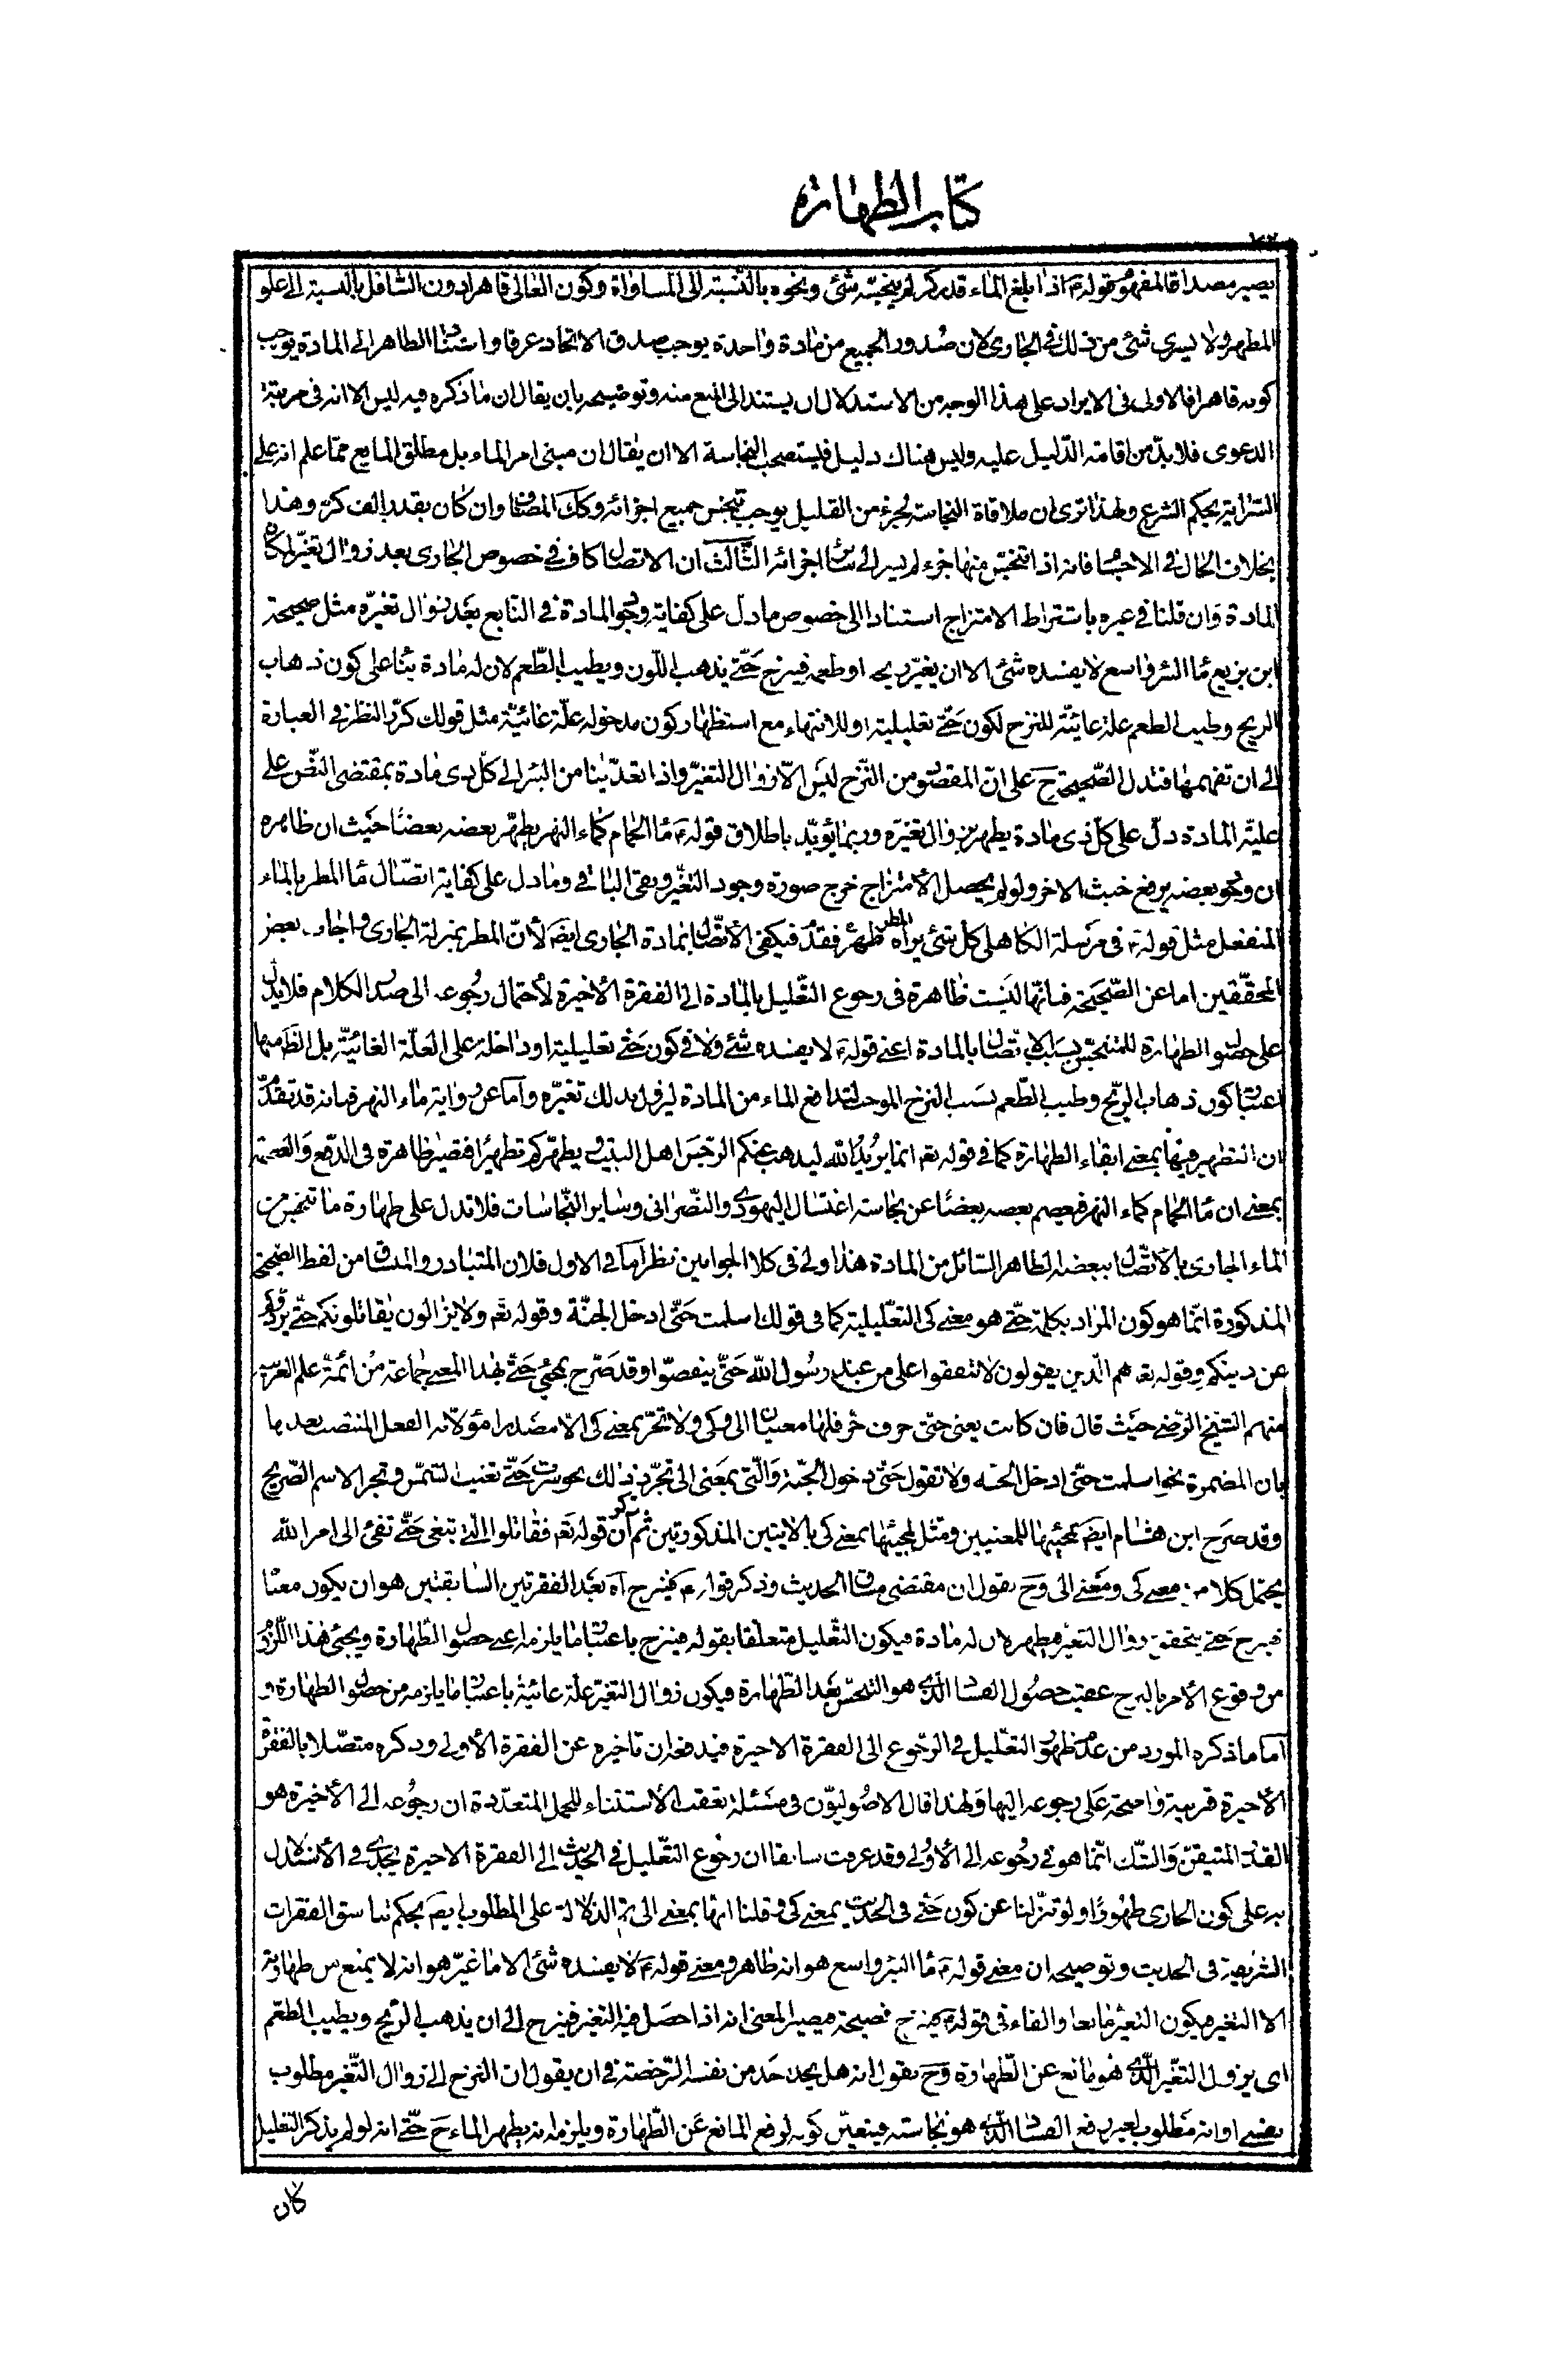 كتاب الطهارة
٧٢
يصير مصداقا لمفهوم قوله ع اذا بلغ الماء قدر كر لم ينجسه شئ ونحوه بالنسبة الى المساواة وكون العالى قاهرا دون السافل بالنسبة الى علو
المطهر ولا يسرى شئ من ذلك فى الجارى لان صدور الجميع من مادة واحدة يوجب صدق الاتحاد عرفا واستناد الطاهر الى المادة يوجب
كونه قاهرا فالاولى فى الايراد على هذا الوجه من الاستدلال ان يستند الى المنع منه وتوضيحه بان يقال ان ما ذكره فيه ليس الا انه فى مرتبة
الدعوى فلا بدّ من اقامة الدّليل عليه وليس هناك دليل فليستصحب النجاسة الا ان يقال ان مبنى امر الماء بل مطلق المايع ممّا علم انه على
السّراية بحكم الشرع ولهذا ترى ان ملاقاة النجاسة لجزء من القليل يوجب تنجس جميع اجزائه وكك المضاف وان كان بقدر الف كرّ وهذا
بخلاف الحال فى الاجسام فانه اذا تنجّس منها جزء لم يسر الى سائر اجزائه الثّالث ان الاتصال كاف فى خصوص الجارى بعد زوال تغيّره لمكان
المادة وان قلنا فى غيره باشتراط الامتزاج استنادا الى خصوص ما دل على كفاية وجود المادة فى النابع بعد زوال تغيّره مثل صحيحة
ابن بزيع ماء البئر واسع لا يفسده شئ الا ان يغيّر ريحه او طعمه فينزح حتّى يذهب اللّون ويطيب الطّعم لان له مادة بناء على كون ذهاب
الريح وطيب الطعم علة غائيّة للنزح لكون حتّى تعليلية او للانتهاء مع استظهار كون مدخوله علّة غائيّة مثل قولك كرّر النظر فى العبارة
الى ان تفهمها فتدل الصّحيحة ح على انّ المقصود من النّزح ليس الّا زوال التغيّر واذا تعدّينا من البئر الى كل ذى مادة بمقتضى النصّ على
عليّة المادة دلّ على كلّ ذى مادة يطهر بزوال تغيّره وربما يؤيّد باطلاق قوله ع ماء الحمام كماء النهر يطهّر بعضه بعضا حيث ان ظاهره
ان وجود بعضه يرفع خبث الاخر ولو لم يحصل الامتزاج خرج صورة وجود التغيّر وبقى الباقى وما دل على كفاية اتصّال ماء المطر بالماء
المنفعل مثل قوله ع فى مرسلة الكاهلى كل شئ يراه المطر فقد طهر فيكفى الاتّصال بمادة الجارى ايضا لانّ المطر بمنزلة الجارى واجاب بعض
المحقّقين اما عن الصّحيحة فبانها ليست ظاهرة فى رجوع التّعليل بالمادة الى الفقرة الاخيرة لاحتمال رجوعه الى صدر الكلام فلا يدل
على حصول الطهارة للمتنجّس بسبب الاتّصال بالمادة اعنى قوله ع لا يفسده شئ ولا فى كون حتّى تعليلية او داخلة على العلّة الغائيّة بل الظّاهر منها
اعتبار كون ذهاب الرّيح وطيب الطّعم بسبب النزح الموجب لتدافع الماء من المادة ليزول بذلك تغيّره وامّا عن رواية ماء النهر فبانه قد تقدّم
ان التطهير فيها بمعنى ابقاء الطّهارة كما فى قوله تعه انما يريد اللّه ليذهب عنكم الرّجس اهل البيت ويطهّركم تطهيرا فتصير ظاهرة فى الدفع والعصمة
بمعنى ان ماء الحمام كماء النهر فيعصم بعضه بعضا عن نجاسة اغتسال اليهودى والنّصرانى وساير النّجاسات فلا تدل على طهارة ما تنجس من
الماء الجارى بالاتّصال ببعضه الطاهر السّائل من المادة هذا ولى فى كلا الجوابين نظر امّا فى الاول فلان المتبادر والمنساق من لفظ الصّحيحة
المذكورة انّما هو كون المراد بكلمة حتّى هو معنى كى التعليلية كما فى قولك اسلمت حتّى ادخل الجنّة وقوله تعه ولا يزالون يقاتلونكم حتّى يردّوكم
عن دينكم وقوله تعه هم الّذين يقولون لا تنفقوا على من عند رسول اللّه حتّى ينفضّوا وقد صرّح بمجئ حتّى لهذا المعنى جماعة من ائمّة علم العربيّة
منهم الشيخ الرّضى حيث قال فان كانت يعنى حتّى حرف جر فلها معنيان الى وكى ولا تجرّ بمعنى كى الّا مصدرا مؤولا به الفعل المنتصب بعدها
بان المضمرة نحو اسلمت حتّى ادخل الجنة ولا تقول حتّى دخول الجنّة والّتى بمعنى الى تجرّ ذلك نحو سرت حتّى تغيب الشّمس وتجر الاسم الصّريح
وقد صرّح ابن هشام ايضا بمجيئها للمعنيين ومثل لمجيئها بمعنى كى بالايتين المذكورتين ثم ذكر ان قوله تعه فقاتلوا الّتى تبغى حتّى تفئ الى امر اللّه
يحتمل كلا من معنى كى ومعنى الى وح نقول ان مقتضى مساق الحديث وذكر قوله ع فينزح اه بعد الفقرتين السابقتين هو ان يكون معناه
فينزح حتى يتحقق زوال التغيّر فيطهر لان له مادة فيكون التّعليل متعلقا بقوله فينزح باعتبار ما يلزمه اعنى حصول الطّهارة ويجئ هذا اللّزوم
من وقوع الامر بالنزح عقيب حصول الفساد الّذى هو التّنجّس بعد الطّهارة فيكون زوال التغيّر علّة غائيّة باعتبار ما يلزمه من حصول الطهارة و
امّا ما ذكره المورد من عدم ظهور التعليل فى الرّجوع الى الفقرة الاخيرة فيدفعه ان تاخيره عن الفقرة الاولى وذكره متّصلا بالفقرة
الأخيرة قرينة واضحة على رجوعه اليها ولهذا قال الاصوليّون فى مسئلة تعقب الأستثناء للجمل المتعدّدة ان رجوعه الى الأخيرة هو
القدر المتيقن والشّك انّما هو فى رجوعه الى الأولى وقد عرفت سابقا ان رجوع التّعليل فى الحديث الى الفقرة الاخيرة يجدى فى الأستدلال
به على كون الجارى طهورا ولو تنزّلنا عن كون حتّى فى الحديث بمعنى كى وقلنا انها بمعنى الى تم الدّلالة على المطلوب ايضا بحكم تناسق الفقرات
الشّريفة فى الحديث وتوضيحه ان معنى قوله ع ماء البئر واسع هو انه طاهر ومعنى قوله ع لا يفسده شئ الا ما غيّر هو انه لا يمنع من طهارته
الا التغير فيكون التغيّر مانعا والفاء فى قوله ع فينزح فصيحة فيصير المعنى انه اذا حصل فيه التغير فينزح الى ان يذهب الرّيح ويطيب الطّعم
اى يزول التغيّر الّذى هو مانع عن الطّهارة وح نقول انه هل يجد احد من نفسه الرّخصة فى ان يقول ان النزح الى زوال التّغير مطلوب
نفسى او انه مطلوب لغير رفع الفساد الّذى هو نجاسته فيتعيّن كونه لرفع المانع عن الطّهارة ويلزمه انه يطهر الماء ح حتّى انه لو لم يذكر التعليل
كان